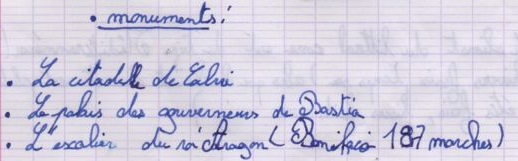 • monuments :
• La citadelle de Calvi
• Le palais des gouverneurs de Bastia
• L'escalier du roi Aragon (Bonifacio 187 marches)